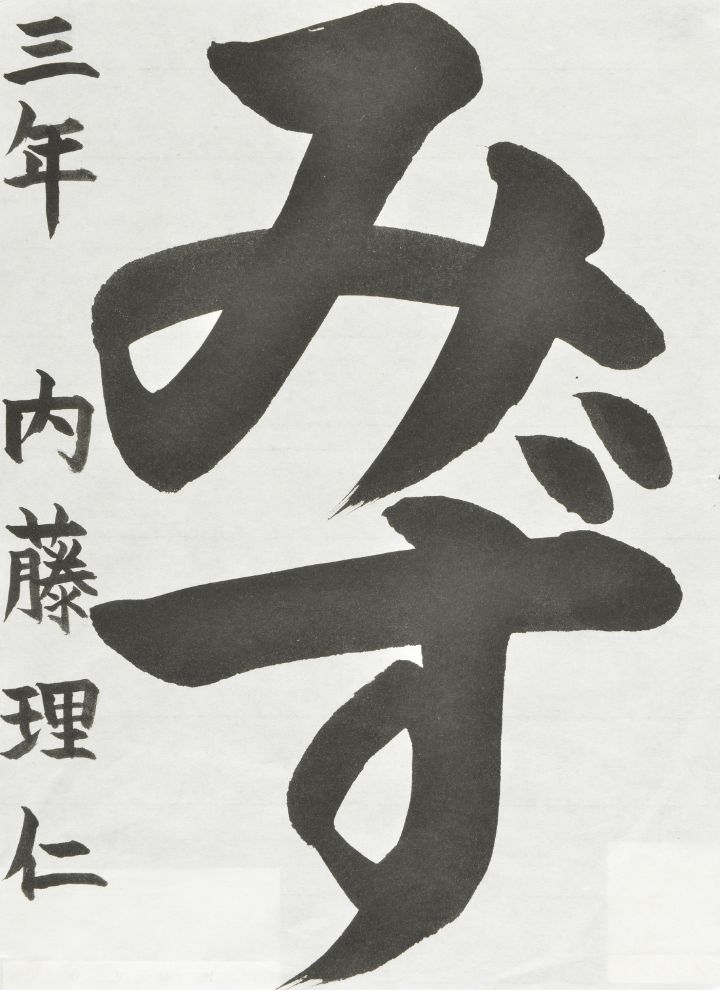 みず
三年 内藤理仁